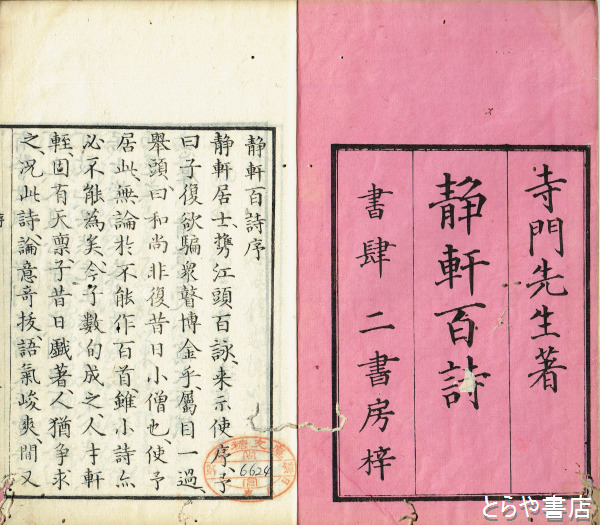 寺門先生著
静軒百詩
書肆 二書房梓
静軒百詩序
静軒居士携江頭百詠、来示使序、予
曰子復欲騙衆瞽博金乎、属目一過、
舉頭曰、和尚非復昔日小僧也、使予
居此、無論於不能作百首、雖小詩亦
必不能為矣、今子数旬成之、人才軒
輊、固有天禀、子昔日戯著、人猶争求
之、况此詩、論意奇抜、語氣峻爽、間又
序
6624
とらや書店